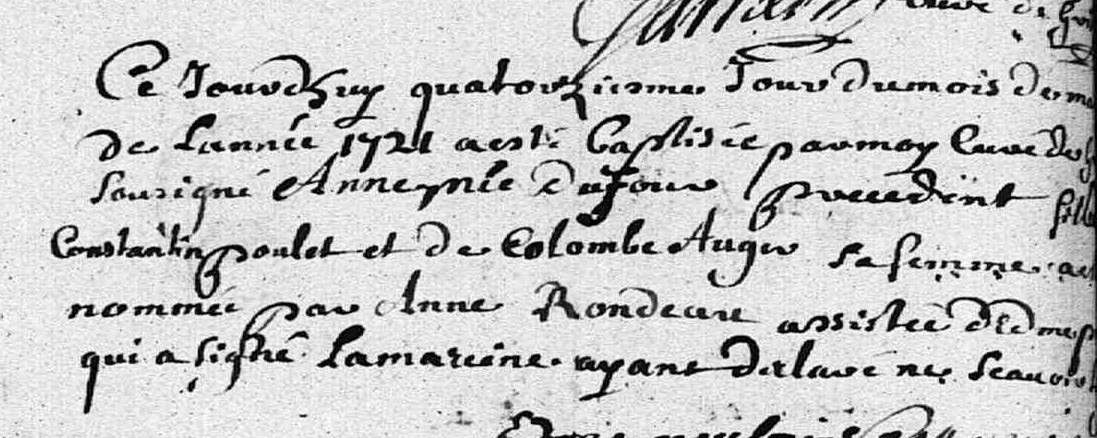 curé de
Ce Jourdhuy quatorziesme Jour du mois de
de Lannée 1721 a esté baptisée par moy Curé de
sousigné Anne née du Jour precedent fille
Constantin poulet et de Colombe Auger sa femme a
nommée par Anne Rondeau assistée
qui a signé La mareine ayant declaré ne scavoir